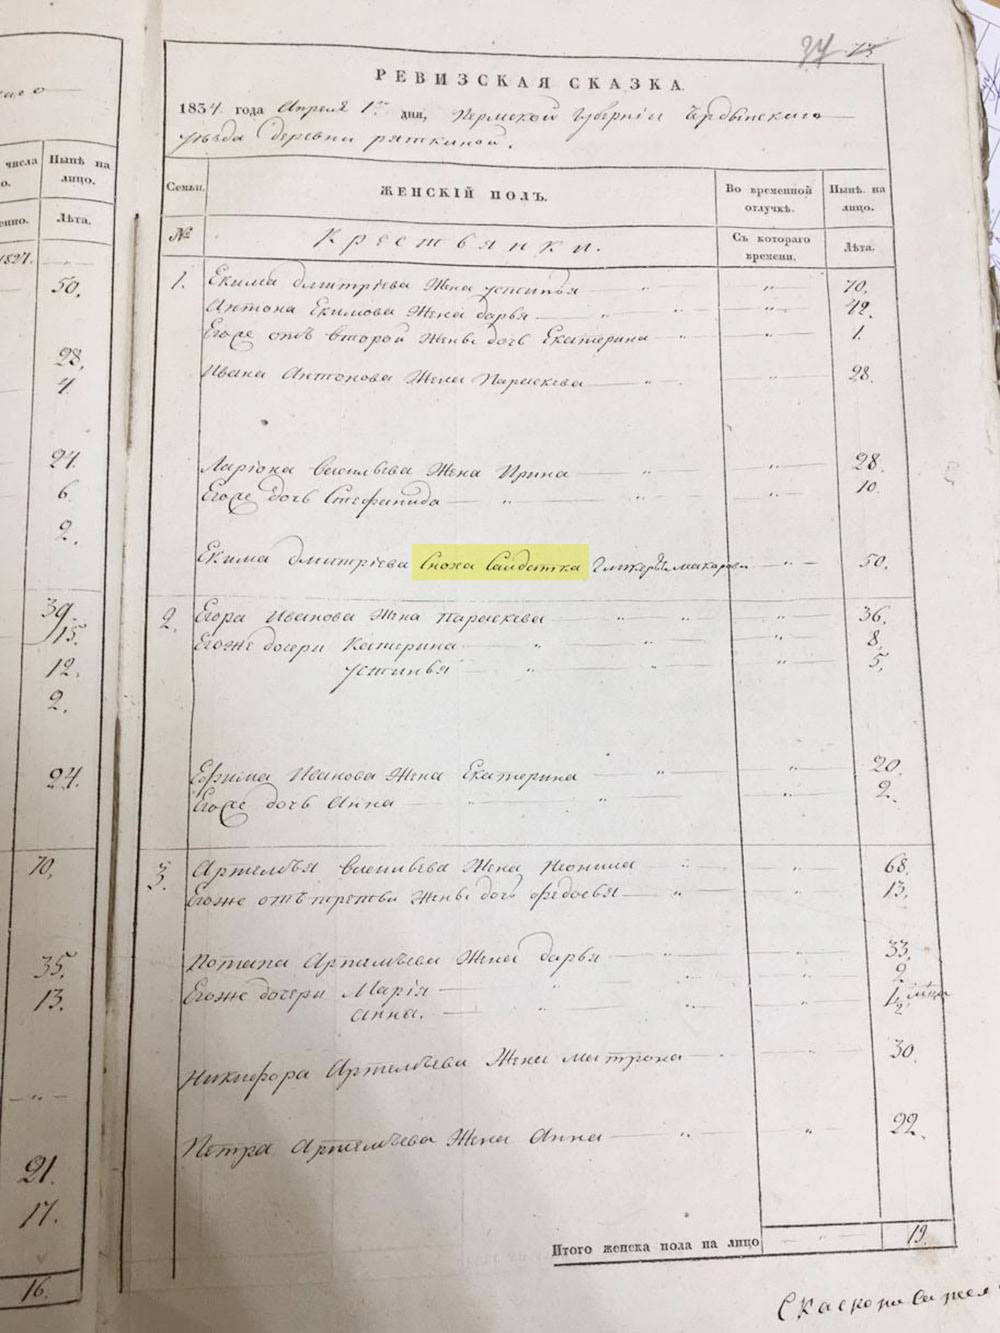 37 73
РЕВИЗСКАЯ СКАЗКА.
1834 года Апреля 1го дня, Пермской Губернiи Чердынскаго
уѣзда деревни ряткиной.
числа
Нынѣ на лицо.
Лѣта.
1827.
50,
28,
4.
24.
6.
2.
39.
15.
12.
2.
24.
70,
35.
13.
21.
17.
16.
Семьи.
ЖЕНСКІЙ ПОЛЪ.
Во временной отлучкѣ.
Нынѣ на лицо.
№
Крестьянки.
Съ котораго времени.
Лѣта.
1. Екима дмитрiева Жена устинья — „ — „ — 70.
Антона Екимова Жена дарья — „ — „ — 42.
Егоже отъ второй Жены дочь Екатерина — „ — „ — 1.
Ивана Антонова Жена Параскева — „ — „ — 28.
Ларiона васильева Жена Ирина — „ — „ — 28.
Егоже дочь Стефанида — „ — „ — 10.
Екима дмитрiева Сноха Салдатка Гликерья макарова — „ — 50.
2. Егора Иванова Жена параскева — „ — „ — 36.
Егоже дочери Катерина — „ — „ — 8,
устинья — „ — „ — 5,
Ефима Иванова Жена Екатерина — „ — „ — 20.
Егоже дочь Анна — „ — „ — 2.
3. Артемья васильева Жена Неонила „ — „ — 68.
Егоже отъ третьи Жены дочь федосья — „ — „ — 13,
Потапа Артемьева Жена дарья — „ — „ — 33.
Егоже дочери Марiя — „ — „ — 9.
Анна. — „ — „ — 1/2
Никифора Артемьева Жена матрона — „ — 30.
Петра Артемьева Жена Анна — „ — „ — 22.
Итого женска пола на лицо — „ — 19.